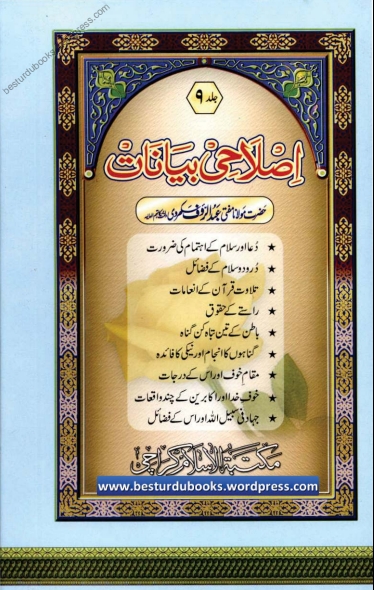 besturdubooks.wordpress.com
جلد ۹
اصلاحی بیانات
حضرت مولانا مفتی عبدالرؤف سکھروی
★ دُعا اور سلام کے اہتمام کی ضرورت
★ درود و سلام کے فضائل
★ تلاوت قرآن کے انعامات
★ راستے کے حقوق
★ باطن کے تین تباہ کن گناہ
★ گناہوں کا انجام اور نیکی کا فائدہ
★ مقامِ خوف اور اس کے درجات
★ خوفِ خدا اور اکابرین کے چند واقعات
★ جہاد فی سبیل اللہ اور اس کے فضائل
مکتبۃ الاسلام کراچی
www.besturdubooks.wordpress.com